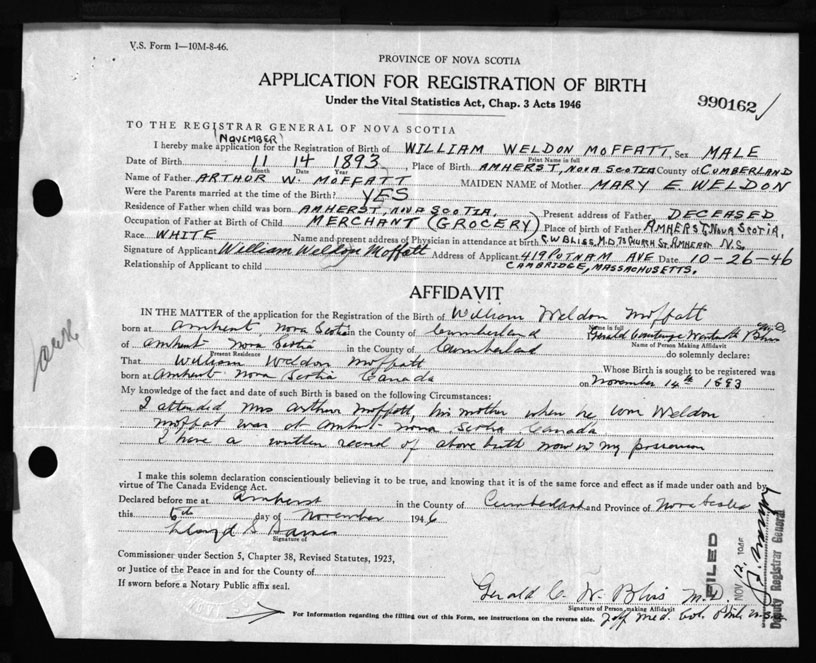 V.S. Form 1—10M-8-46.
PROVINCE OF NOVA SCOTIA
APPLICATION FOR REGISTRATION OF BIRTH
Under the Vital Statistics Act, Chap. 3 Acts 1946
990162
TO THE REGISTRAR GENERAL OF NOVA SCOTIA
(NOVEMBER)
I hereby make application for the Registration of Birth of WILLIAM WELDON MOFFATT, Sex MALE
Print Name in full
Date of Birth 11 14 1893, Place of Birth AMHERST, NOVA SCOTIA County of CUMBERLAND
Month Date Year
Name of Father ARTHUR W. MOFFATT MAIDEN NAME of Mother MARY E. WELDON
Were the Parents married at the time of Birth? YES
Residence of Father when child was born AMHERST, NOVA SCOTIA. Present address of Father DECEASED
Occupation of Father at Birth of Child MERCHANT (GROCERY) Place of birth of Father AMHERST, NOVA SCOTIA.
Race WHITE Name and present address of Physician in attendance at birth C.W. BLISS, M.D. 78 CHURCH ST. AMHERST N.S.
Signature of Applicant William Weldon Moffatt Address of Applicant 419 PUTNAM AVE Date 10-26-46
Relationship of Applicant to child CAMBRIDGE, MASSACHUSETTS.
AFFIDAVIT
IN THE MATTER of the application for the Registration of the Birth of William Weldon Moffatt
Name in full
born at Amherst, Nova Scotia in the County of Cumberland Gerald Bliss M.D.
Name of Person Making Affidavit
of Amherst Nova Scotia in the County of Cumberland do solemnly declare:
Present Residence
That William Weldon Moffatt Whose Birth is sought to be registered was
born at Amherst Nova Scotia Canada on November 14th 1893
My knowledge of the fact and date of such Birth is based on the following Circumstances:
I attended Mrs Arthur Moffatt, his mother when he Wm Weldon
Moffat was at Amherst Nova Scotia Canada
I have a written record of above birth now in my possession
I make this solemn declaration conscientiously believing it to be true, and knowing that it is of the same force and effect as if made under oath and by
virtue of The Canada Evidence Act.
Declared before me at Amherst in the County of Cumberland and Province of Nova Scotia
this 5th day of November 1946
Lloyd S
Signature of
Commissioner under Section 5, Chapter 38, Revised Statutes, 1923,
or Justice of the Peace in and for the County of
If sworn before a Notary Public affix seal.
Gerald C. W. Bliss M.D.
Signature of Person making Affidavit
For Information regarding the filling out of this Form, see instructions on the reverse side.
FILED
NOV 12 1946
Deputy Registrar General